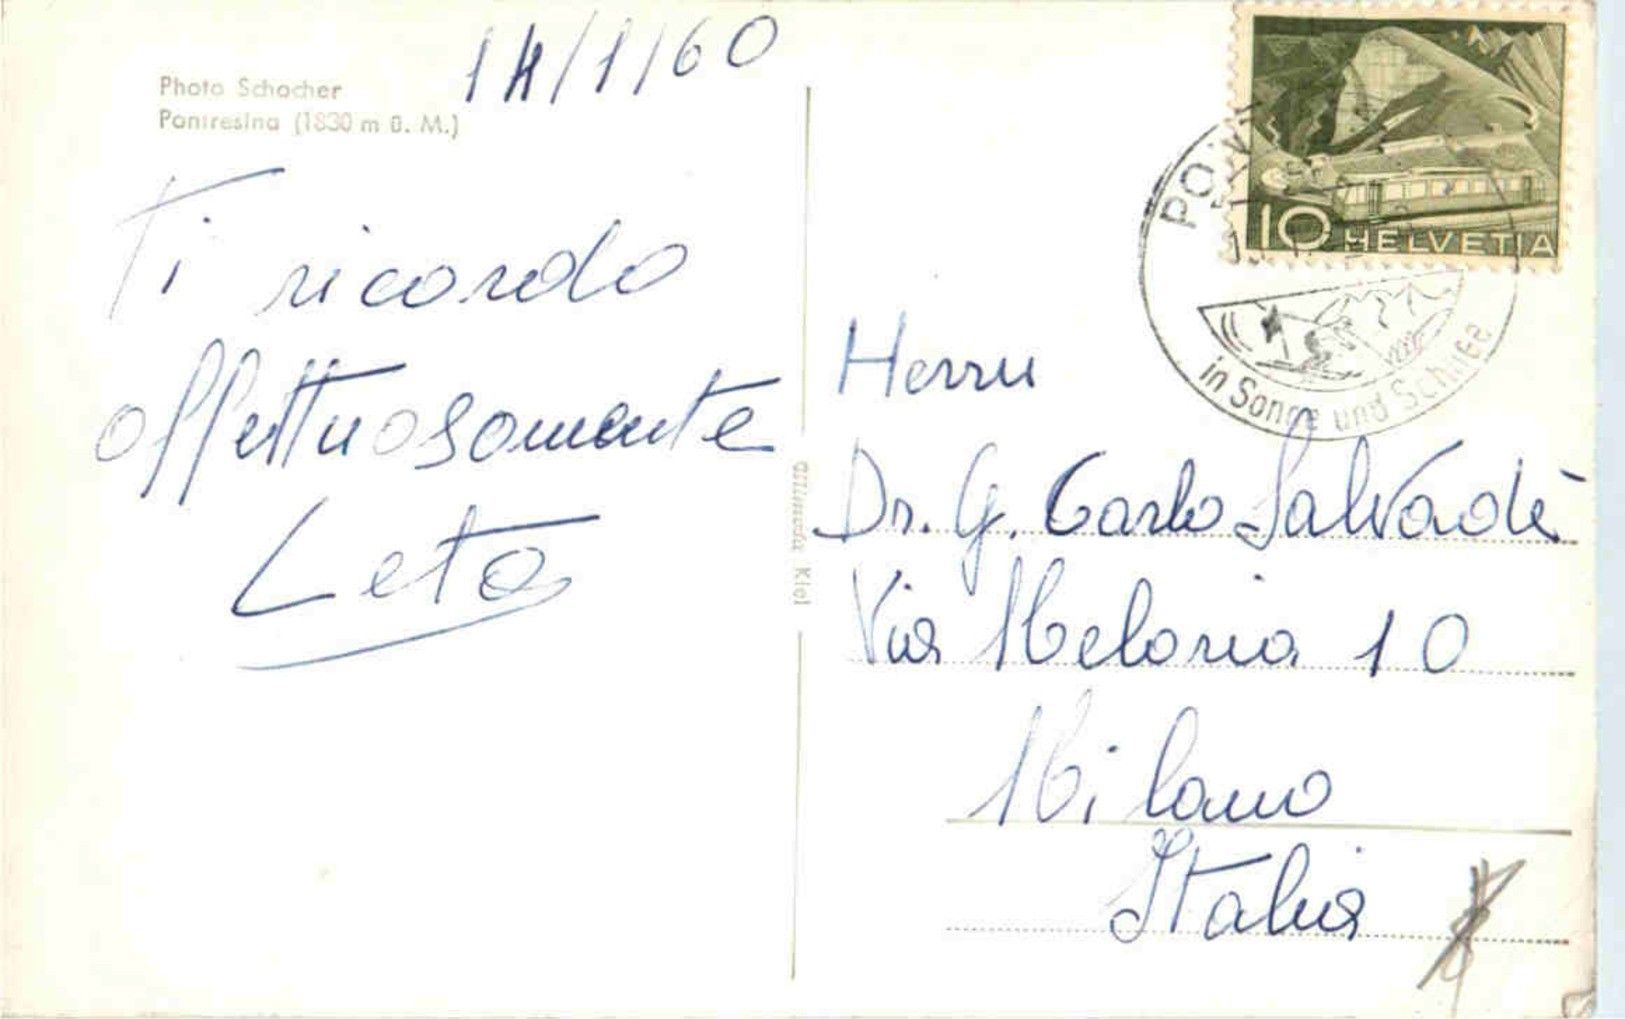 14/1/60
Photo Schocher
Pontresina (1830 m ü. M.)
Ti ricordo
affettuosamente
Leta
10 HELVETIA
in Sonne und Schnee
Herrn
Dr. G. Carlo Salvadè
Via Meloria 10
Milano
Italia